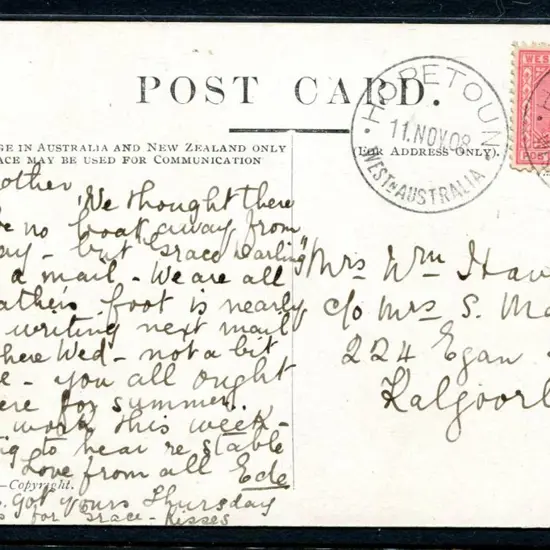 POST CARD.
GE IN AUSTRALIA AND NEW ZEALAND ONLY
ACE MAY BE USED FOR COMMUNICATION
(FOR ADDRESS ONLY).
HOPETOUN
11.NOV.08
WESTN AUSTRALIA
WES
POST
other We thought there
e no boat away from
ay - but "Grace Darling"
a mail - We are all
ather's foot is nearly
writing next mail
here Wed - not a bit
e - you all ought
ere for summer.
work this week -
g to hear re stable
Love from all Ede
- Copyright.
got yours Thursday
s for Grace - Kisses
Mrs Wm Haw
c/o Mrs S. Ma
224 Egan
Kalgoorl